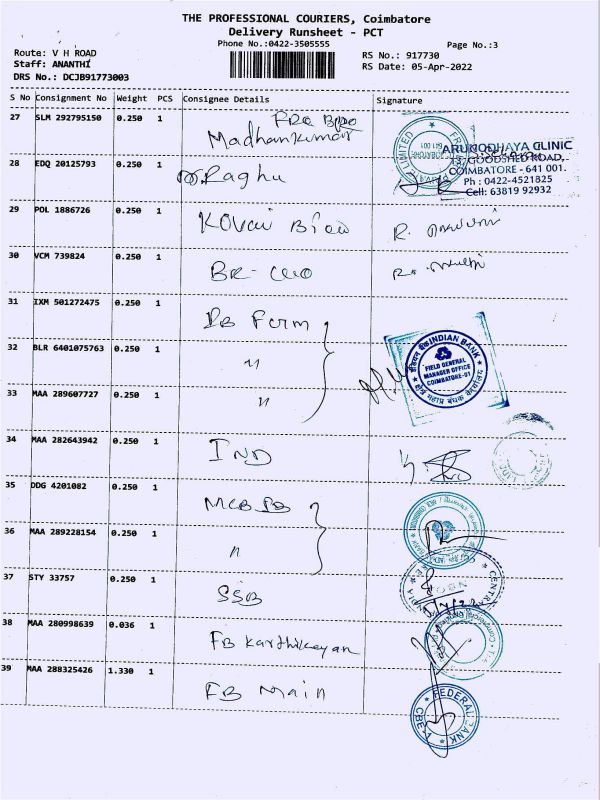 THE PROFESSIONAL COURIERS, Coimbatore
Delivery Runsheet - PCT
Phone No.:0422-3505555
Page No.:3
Route: V H ROAD
RS No.: 917730
Staff: ANANTHI
RS Date: 05-Apr-2022
DRS No.: DCJB91773003
S No Consignment No Weight PCS Consignee Details Signature
27 SLM 292795150 0.250 1
Madhankumar
ARUNODHAYA CLINIC
GOODSHED ROAD,
COIMBATORE - 641 001.
Ph : 0422-4521825
Cell: 63819 92932
28 EDQ 20125793 0.250 1 Raghu
29 POL 1886726 0.250 1 Kovai
30 VCM 739824 0.250 1 BR-
31 IXM 501272475 0.250 1
32 BLR 6401075763 0.250 1 "
INDIAN BANK
FIELD GENERAL
MANAGER OFFICE
COIMBATORE-01
33 MAA 289607727 0.250 1 "
34 MAA 282643942 0.250 1 IND
35 DDG 4201082 0.250 1
36 MAA 289228154 0.250 1 "
37 STY 33757 0.250 1 SSB
38 MAA 280998639 0.036 1 FB Karthikeyan
39 MAA 288325426 1.330 1 FB Main
FEDERAL BANK
CBE-1